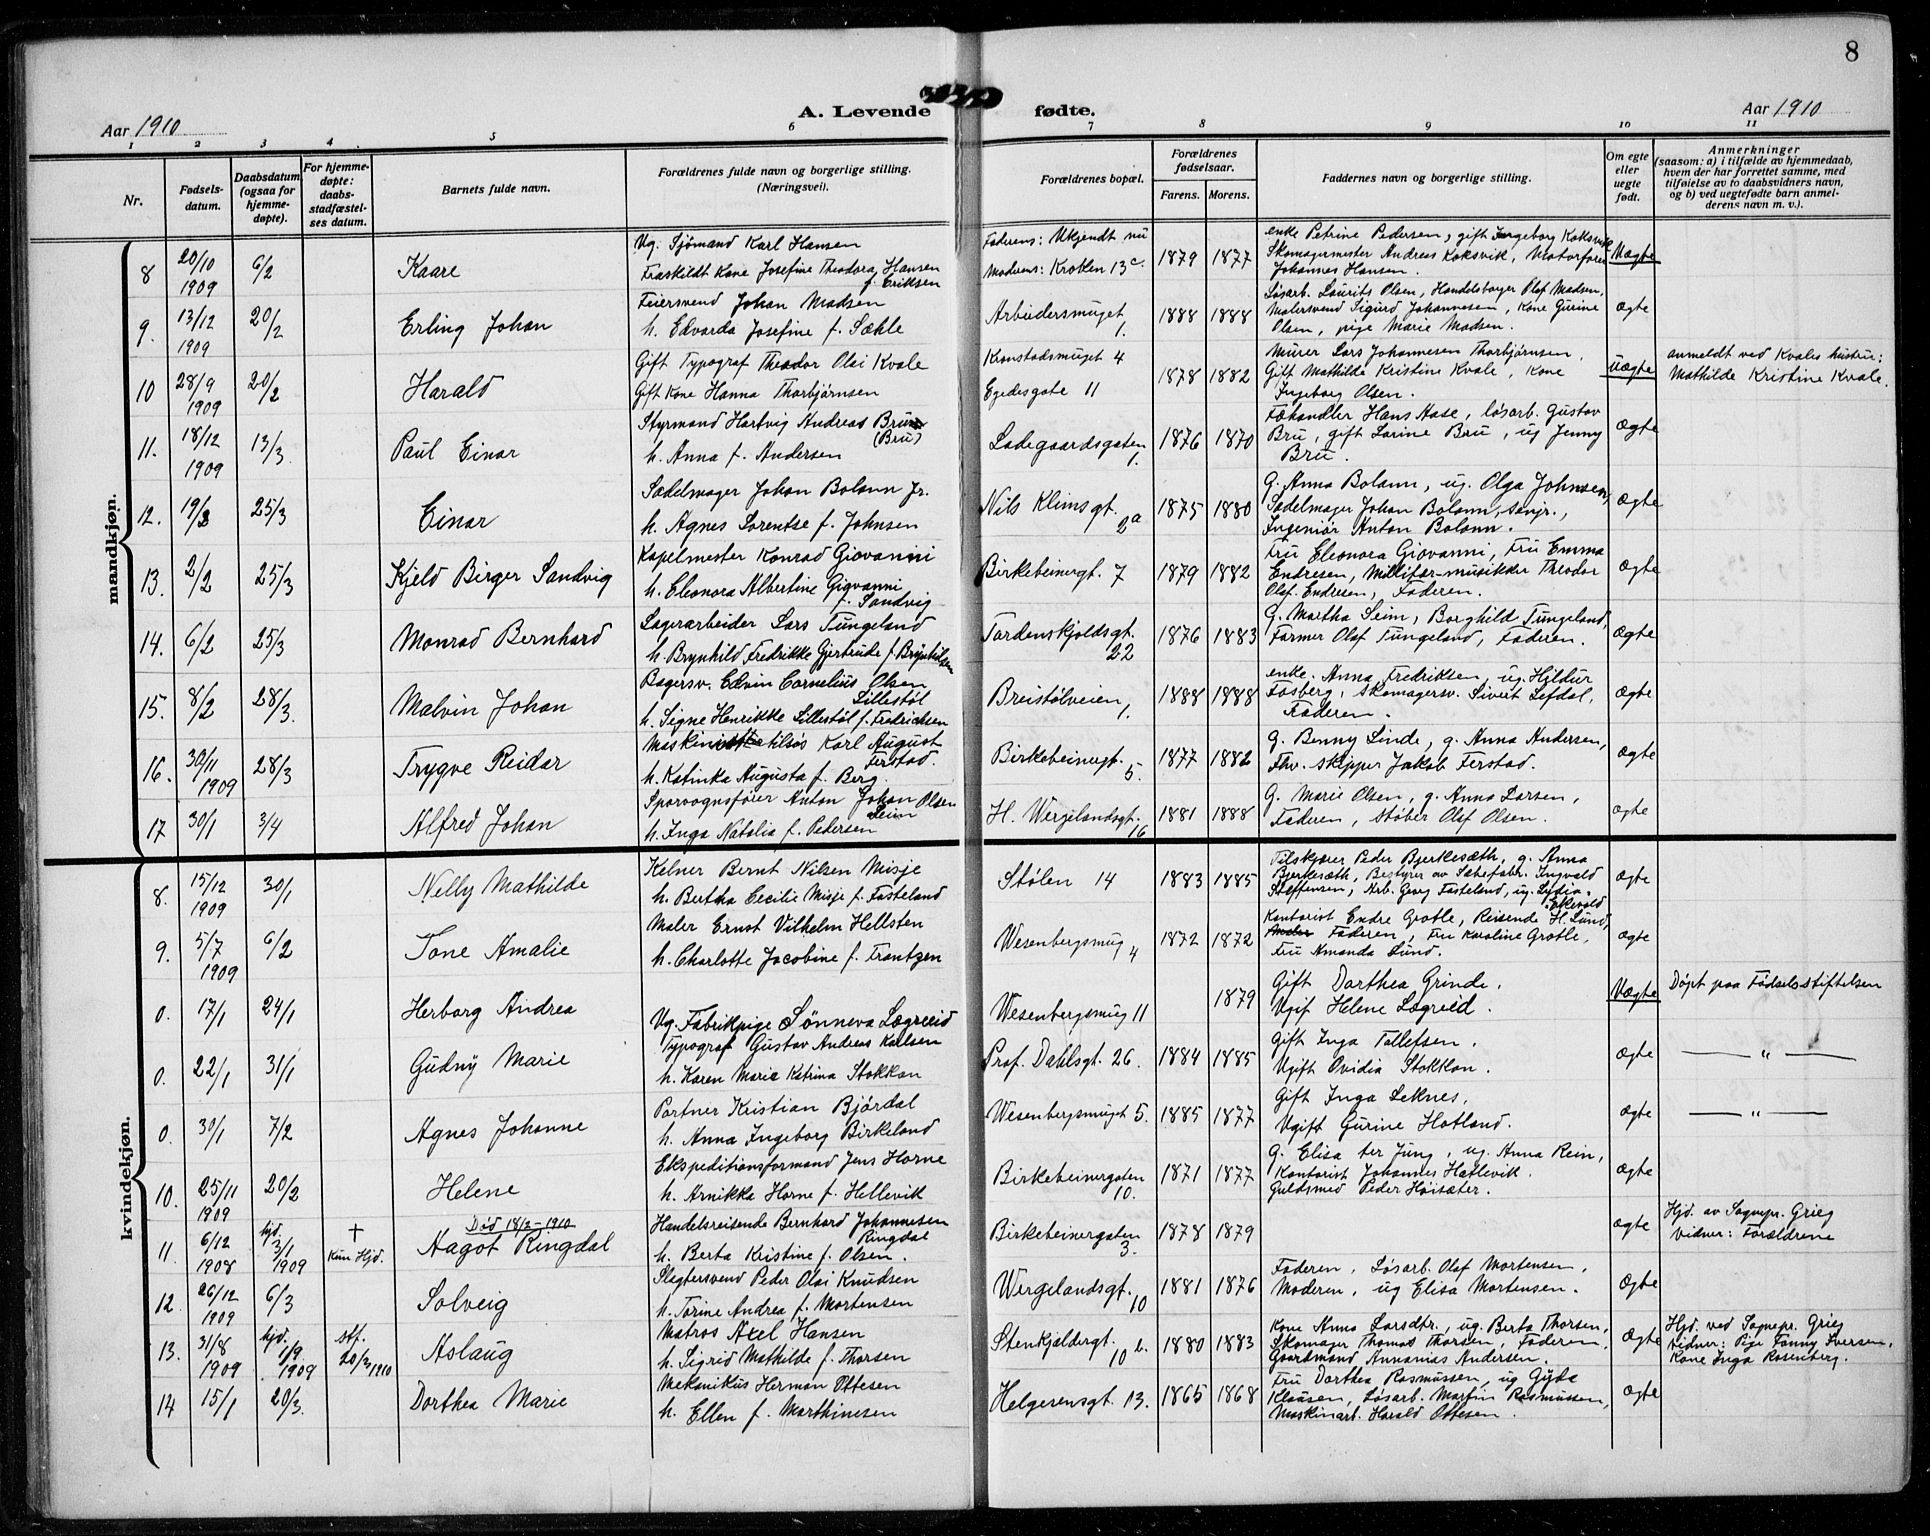 8
A. Levende fødte.
Aar 1910
Aar 1910
1 2 3 4 5 6 7 8 9 10 11
Nr.
Fødsels-
datum.
Daabsdatum
(ogsaa for
hjemme-
døpte).
For hjemme-
døpte:
daabs-
stadfæstel-
ses datum.
Barnets fulde navn.
Forældrenes fulde navn og borgerlige stilling.
(Næringsvei).
Forældrenes bopæl.
Forældrenes
fødselsaar.
Farens. Morens.
Faddernes navn og borgerlige stilling.
Om egte
eller
uegte
født.
Anmerkninger
(saasom: a) i tilfælde av hjemmedaab,
hvem der har forrettet samme, med
tilføielse av to daabsvidners navn,
og b) ved uegtefødte barn anmel-
derens navn m. v.).
mandkjøn.
8 20/10 1909 6/2 Kaare
Ug. Sjömand Karl Hansen
Fraskildt Kone Josefine Theodora Hansen
f. Eriksen
Faderens: Ukjendt nu
Moderens: Kroken 13c.
1879 1877
enke Petrine Pedersen, gift Ingeborg Koksvik
Skomagermester Andreas Koksvik, Motorfører
Johannes Hansen.
Uægte
9. 13/12 1909 20/2 Erling Johan
Feiersvend Johan Madsen
h. Edvarda Josefine f. Sæhle
Arbeidersmuget
1.
1888 1888
Løsarb. Laurits Olsen, Handelsborger Olaf Madsen,
Malersvend Sigurd Johannesen, Kone Gurine
Olsen, pige Marie Madsen.
ægte
10 28/9 1909 20/2 Harald
Gift Typograf Theodor Olai Kvale
Gift Kone Hanna Thorbjørnsen
Kronstadsmuget 4
Egedesgate 11
1878 1882
Murer Lars Johannesen Thorbjørnsen,
Gift Mathilde Kristine Kvale, Kone
Ingeborg Olsen.
uægte
anmeldt ved Kvales hustru:
Mathilde Kristine Kvale.
11. 18/12 1909 13/3 Paul Einar
Styrmand Hartvig Andreas Brun
(Bru)
h. Anna f. Andersen
Ladegaardsgaten
1.
1876 1870
Fæhandler Hans Aase, løsarb. Gustav
Bru, gift Larine Bru, ug Jenny
Bru.
ægte
12. 25/3 Einar
Sadelmager Johan Bolann Jr.
h. Agnes Lorentse f. Johnsen
Nils Klimsgt.
2a
1875 1880
G. Anna Bolann, ug. Olga Johnsen,
Sadelmager Johan Bolann, senjr.,
Ingeniør Anton Bolann.
ægte
13. 2/2 25/3 Kjeld Birger Sandvig
Kapelmester Konrad Giovanni
h. Eleonora Albertine Giovanni
f. Sandvig
Birkebeinergt. 7
1879 1882
Fru Eleonora Giovanni, Fru Emma
Endresen, Militær-musikker Theodor
Olaf Endresen, Faderen.
ægte
14. 6/2 25/3 Monrad Bernhard
Lagerarbeider Lars Tungeland
h. Brynhild Fredrikke Gjertrude f. Brynhilsen
Tordenskjoldsgt.
22
1876 1883
G. Martha Seim, Borghild Tungeland,
Farmer Olaf Tungeland, Faderen.
ægte
15. 8/2 28/3 Malvin Johan
Bagersv. Edvin Cornelius Olsen
Lillestøl
h. Signe Henrikke Lillestøl f. Fredrichsen
Breistølveien
1.
1888 1888
enke. Anna Fredriksen, ug. Hjldur
Fosberg, skomagersv. Sivert Lefdal,
Faderen.
ægte
16. 30/11 1909 28/3 Trygve Reidar
Karl August
Ferstad.
h. Katinka Augusta f. Berg.
Birkebeinergt.
5.
1877 1882
g. Benny Linde, g. Anna Andersen,
Fhv. skipper Jakob Ferstad.
ægte
17 30/1 3/4 Alfred Johan
Sporvognsfører Anton Johan Olsen
Seim
h. Inga Natalia f. Pedersen
H. Wergelandsgt.
16
1881 1888
G. Marie Olsen, g. Anna Larsen,
Faderen, støber Olaf Olsen.
ægte
kvindekjøn.
8. 15/12 1909 30/1 Nelly Mathilde
Kelner Bernt Nilsen Misje
h. Bertha Cecilie Misje f. Fasteland
Stølen 14
1883 1885
Tilskjærer Peder Bjerkesæth, g. Anna
Bjerkesæth, Bestyrer av Sæbefabr. Ingvald
Steffensen, Arb. Georg Fasteland, ug. Lydia
Ekevold
ægte
9. 5/7 1909 6/2 Tone Amalie
Maler Ernst Vilhelm Hellsten
h. Charlotte Jacobine f. Frantzen
Wesenbergsmug
4
1872 1872
Kontorist Endre Grotle, Reisende H. Lund,
Maler Faderen, Fru Karoline Grotle,
Fru Amanda Lund.
ægte
0. 17/1 24/1 Herborg Andrea
Ug. Fabrikpige Sönneva Lægreid
Wesenbergsmug 11
1879
Gift Dorthea Grinde.
Ugif Helene Lægreid.
Uægte
Døpt paa Fødselsstiftelsen
0. 22/1 31/1 Gudny Marie
Typograf Gustav Andreas Karlsen
h. Karen Marie Katrina Stokkan
Prof. Dahlsgt. 26.
1884 1885
Gift Inga Tollefsen.
Ugift Ovidia Stokkan.
ægte
— " —
0. 30/1 7/2 Agnes Johanne
Portner Kristian Bjórdal
h. Anna Ingeborg Birkeland
Wesenbergsmuget 5.
1885 1877
Gift Inga Leknes.
Ugift Gurine Hotland.
ægte
— " —
10. 25/11 1909 20/2 Helene
Ekspeditionsformand Jens Horne
h. Arnikka Horne f. Hellevik
Birkebeinergaten
10.
1871 1877
G. Elisa ter Jung, ug Anna Rein,
Kontorist Johannes Hatlevik.
Guldsmed Peder Höisæter.
ægte
11. 6/12 1908 hjd. 3/1 1909 † Kun Hjd.
Död 18/2-1910
Aagot Ringdal
Handelsreisende Bernhard Johannesen
Ringdal
h. Berta Kristine f. Olsen.
Birkebeinergaten
3.
1878 1879
ægte
Hjd. av Sognepr. Grieg
Vidner: Forældrene
12. 26/12 1909 6/3 Solveig
Slagtersvend Peder Olai Knudsen
h. Torine Andrea f. Mortensen
Wergelandsgt.
10
1881 1876
Faderen, Løsarb. Olaf Mortensen,
Moderen, ug Elisa Mortensen.
ægte
13. 31/8 1909 hjd. 1/9 1909 stf. 20/3 1910 Aslaug
Matros Axel Hansen
h. Sigrid Mathilde f. Thorsen
Stenkjældergt.
10 b.
1880 1883
Kone Anna Larsdtr., ug. Berta Thorsen,
Skomager Thomas Thorsen, Faderen,
Gaardmand Annanias Andersen.
ægte
Hjd. ved Sognepr. Grieg
Vidner: Pige Fanny Iversen,
Kone Inga Rosenberg.
14 15/1 20/3. Dorthea Marie
Mekanikus Herman Ottesen
h. Ellen f. Marthinesen
Helgesensgt. 13.
1865 1868
Fru Dorthea Rasmussen, ug Gyda
Klausen, Løsarb. Martin Rasmussen,
Maskinarb. Harald Ottesen.
ægte